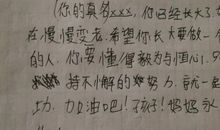 (你的真名xxx,你已经长大了
在慢慢变老.希望你长大要做一个
的人,你要懂得毅力与恒心,只
持不懈的努力,就一定
功,加油吧!孩子!妈妈永